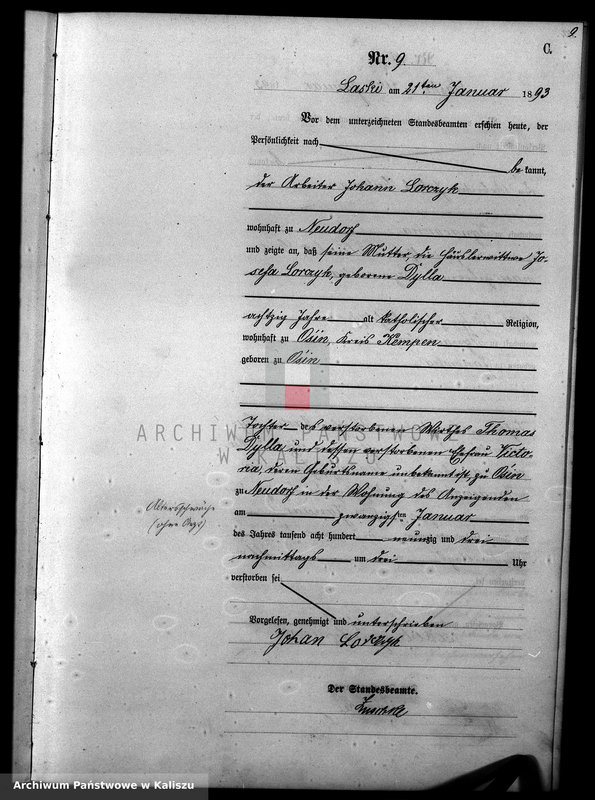 9.
C.
Nr. 9
Laski am 21ten Januar 1893
Vor dem unterzeichneten Standesbeamten erschien heute, der
Persönlichkeit nach
be kannt,
der Arbeiter Johann Lorczyk
wohnhaft zu Neudorf
und zeigte an, daß seine Mutter, die Häuslerwittwe Jo-
sefa Lorczyk, geborene Dylla
achtzig Jahre alt katholischer Religion,
wohnhaft zu Osin, Kreis Kempen
geboren zu Osin
ARCHIWUM PAŃSTWOWE
W KALISZU
Tochter des verstorbenen Wirthes Thomas
Dylla und dessen verstorbenen Ehefrau Victo-
ria, deren Geburtsname unbekannt ist, zu Osin
zu Neudorf in der Wohnung des Anzeigenden
am zwanzigsten Januar
des Jahres tausend acht hundert neunzig und drei
nachmittags um drei Uhr
verstorben sei
Altersschwäche
(ohne Arzt)
Vorgelesen, genehmigt und unterschrieben
Johan Lorczyk
Der Standesbeamte.
Archiwum Państwowe w Kaliszu